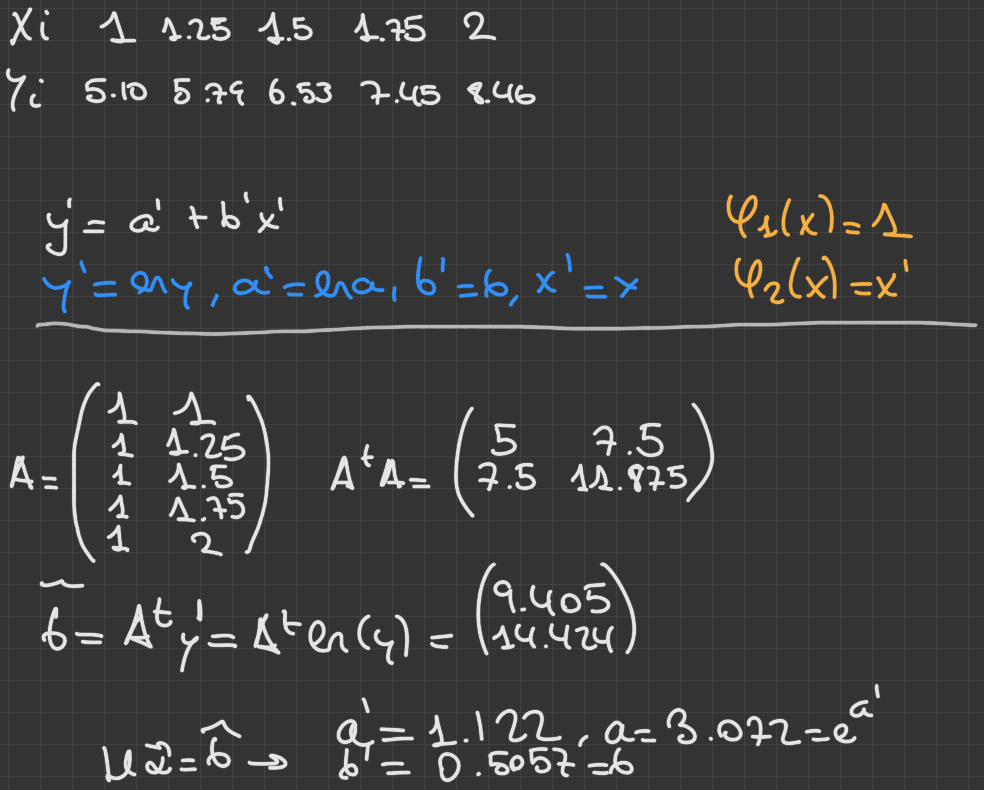 Xi 1 1.25 1.5 1.75 2
Yi 5.10 5.79 6.53 7.45 8.46
y' = a' + b'x'
φ1(x) = 1
y' = ln y, a' = ln a, b' = b, x' = x
φ2(x) = x'
A = (1 1
1 1.25
1 1.5
1 1.75
1 2)
AᵗA = (5 7.5
7.5 11.875)
b̃ = Aᵗ y' = Aᵗ ln(y) = (9.405
14.424)
a' = 1.122, a = 3.072 = e^a'
b' = 0.5057 = b